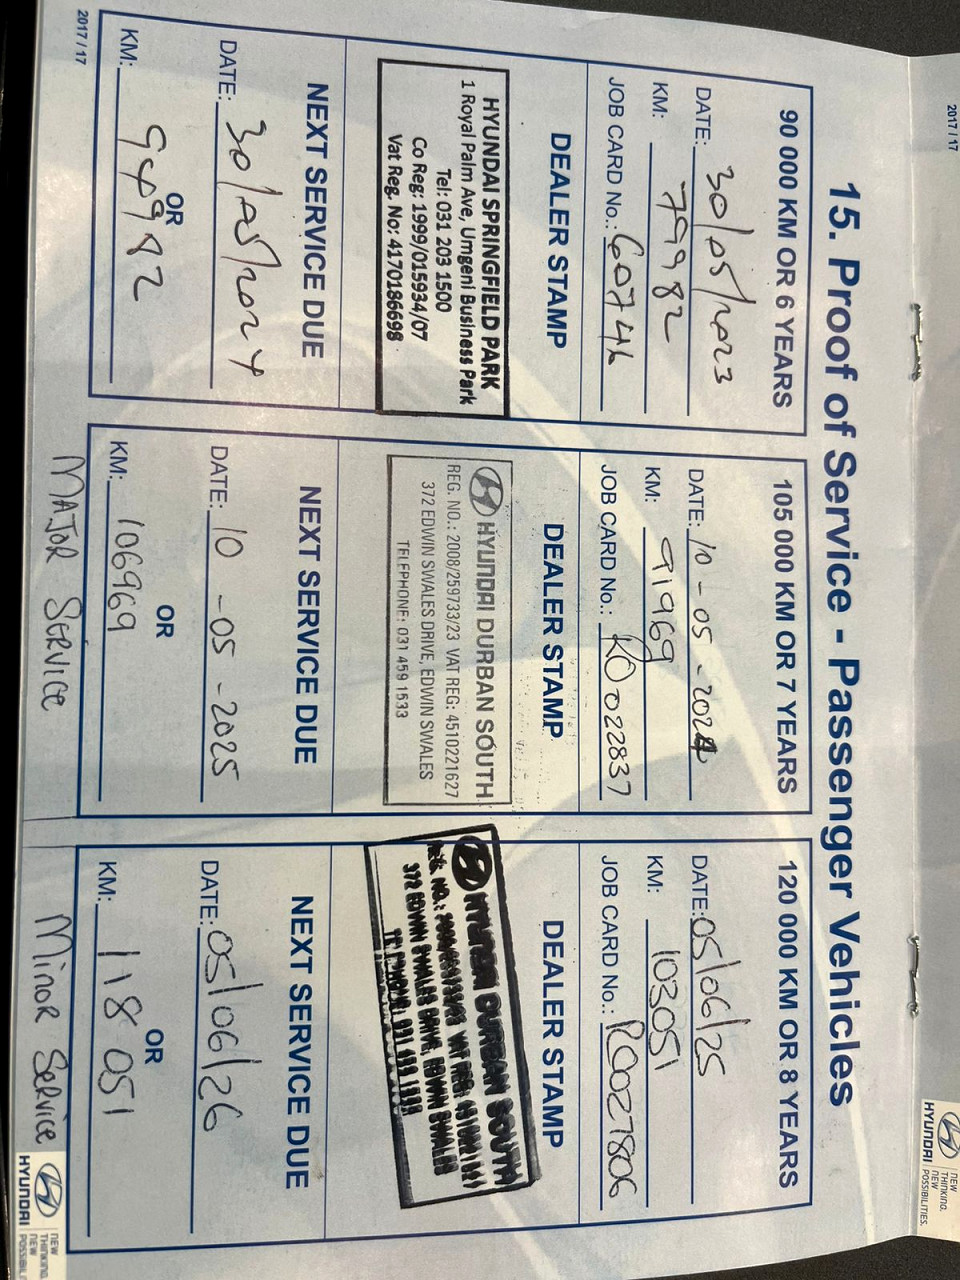 2017 / 17
15. Proof of Service - Passenger Vehicles
90 000 KM OR 6 YEARS
DATE: 30/05/2023
KM: 79982
JOB CARD No.: 60746
DEALER STAMP
HYUNDAI SPRINGFIELD PARK
1 Royal Palm Ave, Umgeni Business Park
Tel: 031 203 1500
Co Reg: 1999/015934/07
Vat Reg. No: 4170186698
NEXT SERVICE DUE
DATE: 30/05/2024
OR
KM: 94982
2017 / 17
105 000 KM OR 7 YEARS
DATE: 10-05-2024
KM: 91969
JOB CARD No.: RO022837
DEALER STAMP
HYUNDAI DURBAN SOUTH
REG. NO.: 2008/259733/23 VAT REG: 4510221627
372 EDWIN SWALES DRIVE, EDWIN SWALES
TELEPHONE: 031 459 1533
NEXT SERVICE DUE
DATE: 10-05-2025
OR
KM: 106969
MAJOR SERVICE
120 000 KM OR 8 YEARS
DATE: 05/06/25
KM: 103051
JOB CARD No.: RO027806
DEALER STAMP
HYUNDAI DURBAN SOUTH
372 EDWIN SWALES DRIVE, EDWIN SWALES
NEXT SERVICE DUE
DATE: 05/06/26
OR
KM: 118051
Minor Service
HYUNDAI
NEW
THINKING.
NEW
POSSIBILITIES.
HYUNDAI
NEW
THINKING.
NEW